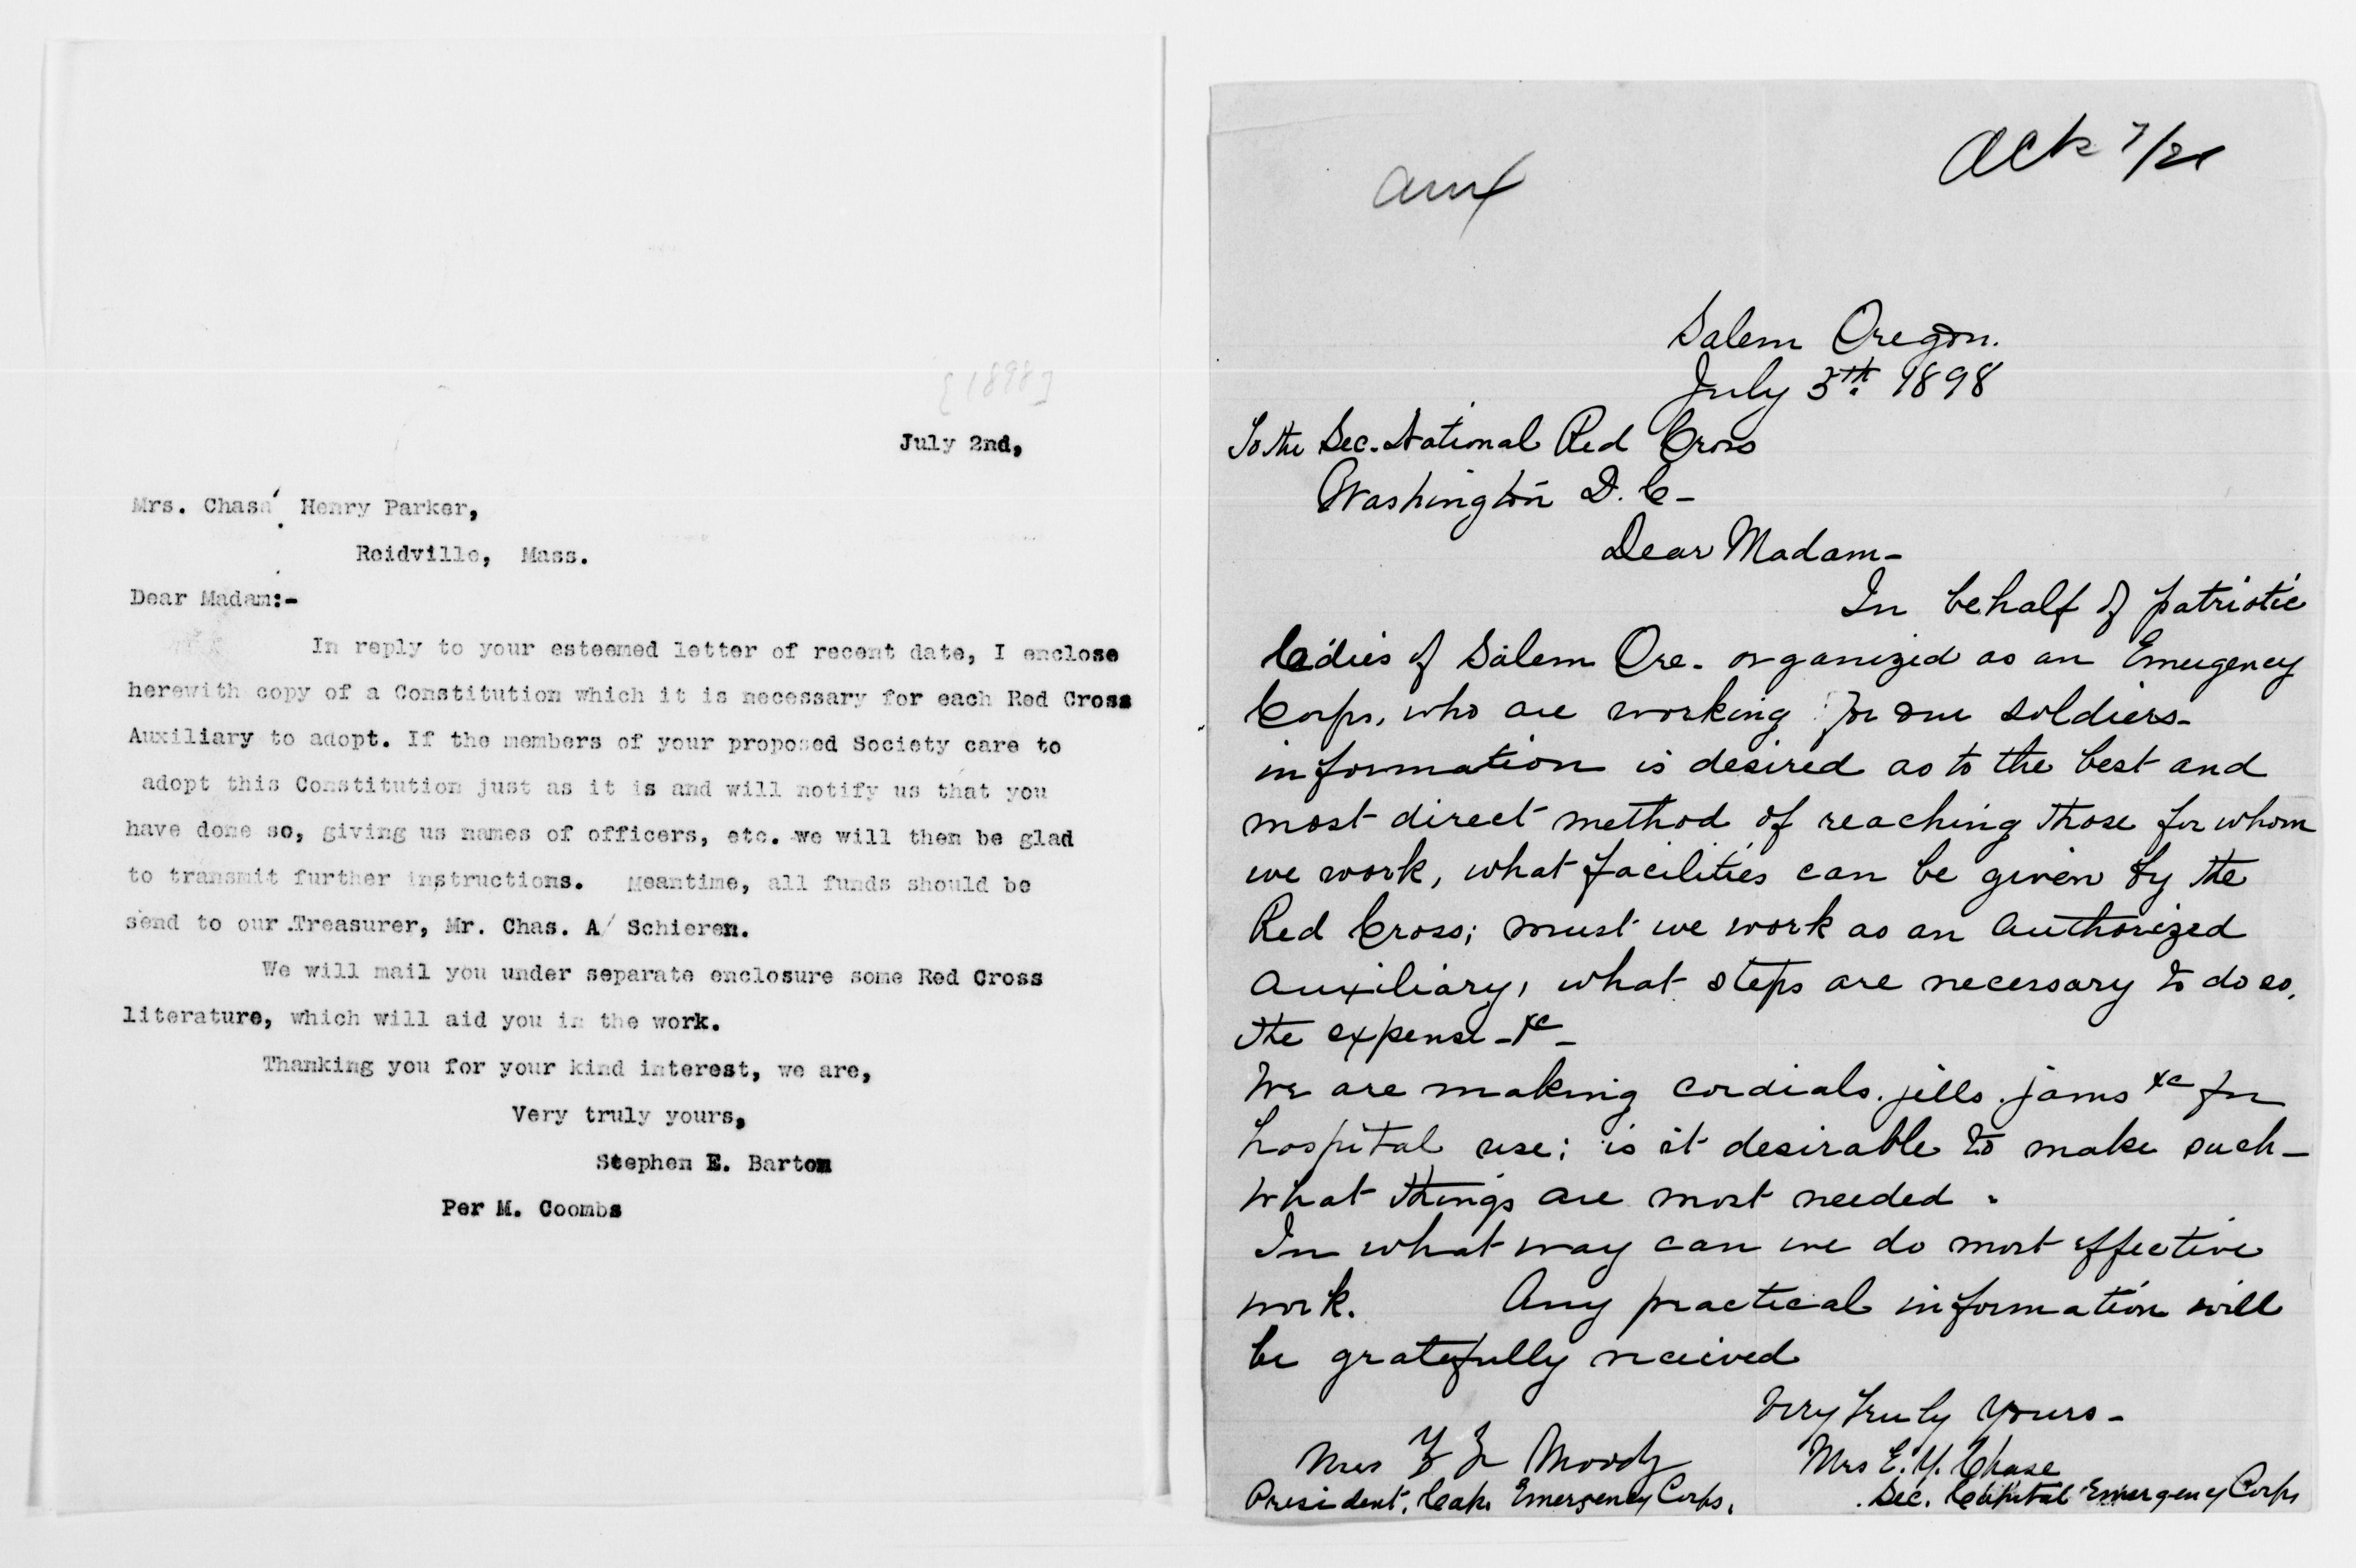 [1898]
July 2nd,
Mrs. Chas. Henry Parker,
Reidville, Mass.
Dear Madam:-
In reply to your esteemed letter of recent date, I enclose
herewith copy of a Constitution which it is necessary for each Red Cross
Auxiliary to adopt. If the members of your proposed Society care to
adopt this Constitution just as it is and will notify us that you
have done so, giving us names of officers, etc. we will then be glad
to transmit further instructions. Meantime, all funds should be
send to our Treasurer, Mr. Chas. A/ Schieren.
We will mail you under separate enclosure some Red Cross
literature, which will aid you in the work.
Thanking you for your kind interest, we are,
Very truly yours,
Stephen E. Barton
Per M. Coombs
Aux
Ack 7/21
Salem Oregon.
July 5th. 1898
To the Sec. National Red Cross
Washington D.C-
Dear Madam-
In behalf of patriotic
ladies of Salem Ore. organized as an Emergency
Corps, who are working for our soldiers-
information is desired as to the best and
most direct method of reaching those for whom
we work, what facilities can be given by the
Red Cross; must we work as an authorized
auxiliary, what steps are necessary to do so,
the expense-&c-
We are making cordials. jells. jams &c for
hospital use: is it desirable to make such-
what things are most needed.
In what way can we do most effective
work. Any practical information will
be gratefully received
Very truly yours-
Mrs Moody
President. Cap. Emergency Corps.
Mrs E. Y. Chase
Sec. Capital Emergency Corps